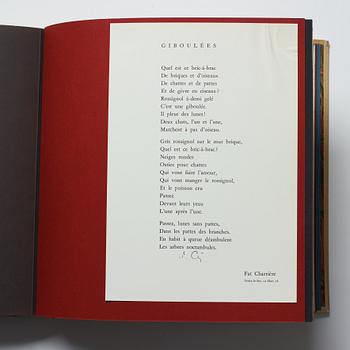 GIBOULÉES
Quel est ce bric-à-brac
De briques et d'oiseaux
De chattes et de pattes
Et de givre en ciseaux?
Rossignol à-demi gelé
C'est une giboulée.
Il pleut des lunes!
Deux chats, l'un et l'une,
Marchent à pas d'oiseau.
Gris rossignol sur le mur brique,
Quel est ce bric-à-brac?
Neiges rondes
Osties pour chattes
Qui vont faire l'amour,
Qui vont manger le rossignol,
Et le poisson cru
Passez
Devant leurs yeux
L'une après l'une.
Passez, lunes sans pattes,
Dans les pattes des branches.
En habit à queue déambulent
Les arbres noctambules.
Fat Charrière